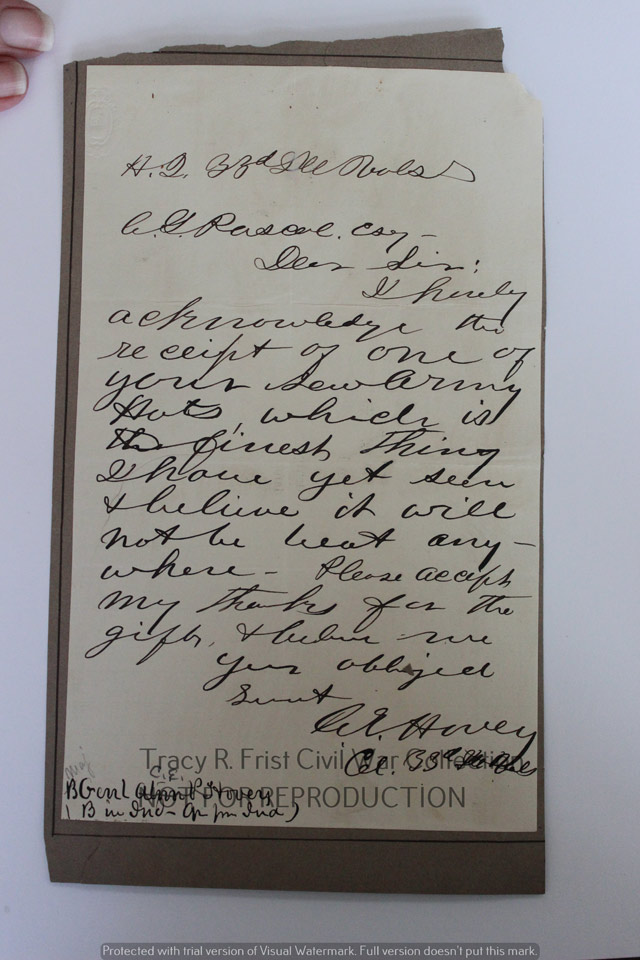 H. Q. 33d Ill Vols
C. G. Rascoe. Esq -
Dear Sir:
I hereby
acknowledge the
receipt of one of
your new Army
Hats, which is
the finest thing
I have yet seen
& believe it will
not be beat any-
where - Please accept
my thanks for the
gift, & believe me
Your obliged
Servt
C. E. Hovey
Col. 33d Ill Vols
Tracy R. Frist Civil War Collection
NOT FOR REPRODUCTION
C. E.
B Genl Alvin P. Hovey
( B in Ind - Ap fm Ind )
Protected with trial version of Visual Watermark. Full version doesn't put this mark.